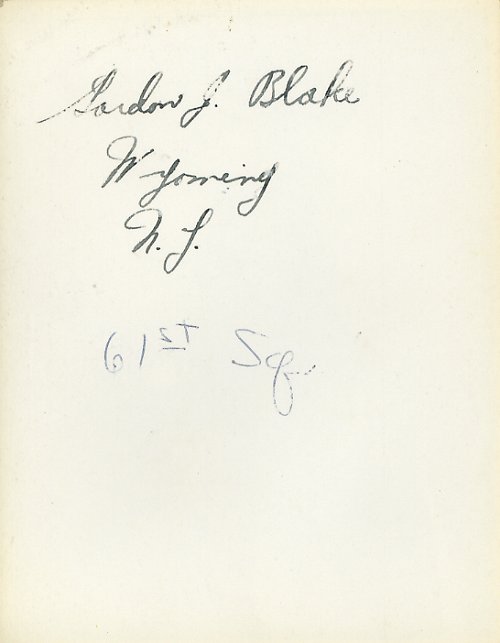 Gordon J. Blake
Wyoming
N. J.
61ST Sq.